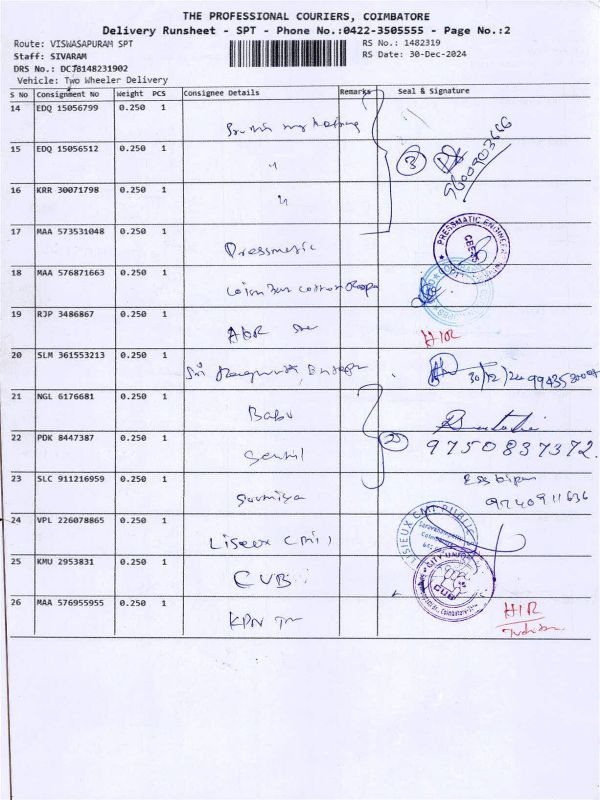 THE PROFESSIONAL COURIERS, COIMBATORE
Delivery Runsheet - SPT - Phone No.:0422-3505555 - Page No.:2
Route: VISWASAPURAM SPT RS No.: 1482319
Staff: SIVARAM RS Date: 30-Dec-2024
DRS No.: DCJ8148231902
Vehicle: Two Wheeler Delivery
S No Consignment No Weight PCS Consignee Details Remarks Seal & Signature
14 EDQ 15056799 0.250 1
15 EDQ 15056512 0.250 1 " 3
9600903666
16 KRR 30071798 0.250 1 "
17 MAA 573531048 0.250 1 Pressmatic
PRESSMATIC ENGINEER
18 MAA 576871663 0.250 1
19 RJP 3486867 0.250 1
20 SLM 361553213 0.250 1 Sri 30/12/24
21 NGL 6176681 0.250 1 Babu
22 PDK 8447387 0.250 1 Senthil
9750837372.
23 SLC 911216959 0.250 1 Sowmiya
9740911636
24 VPL 226078865 0.250 1 Liseux CMI
LISIEUX CMI PUBLIC
25 KMU 2953831 0.250 1 CUB
CITY UNION
CUB
26 MAA 576955955 0.250 1 KPN